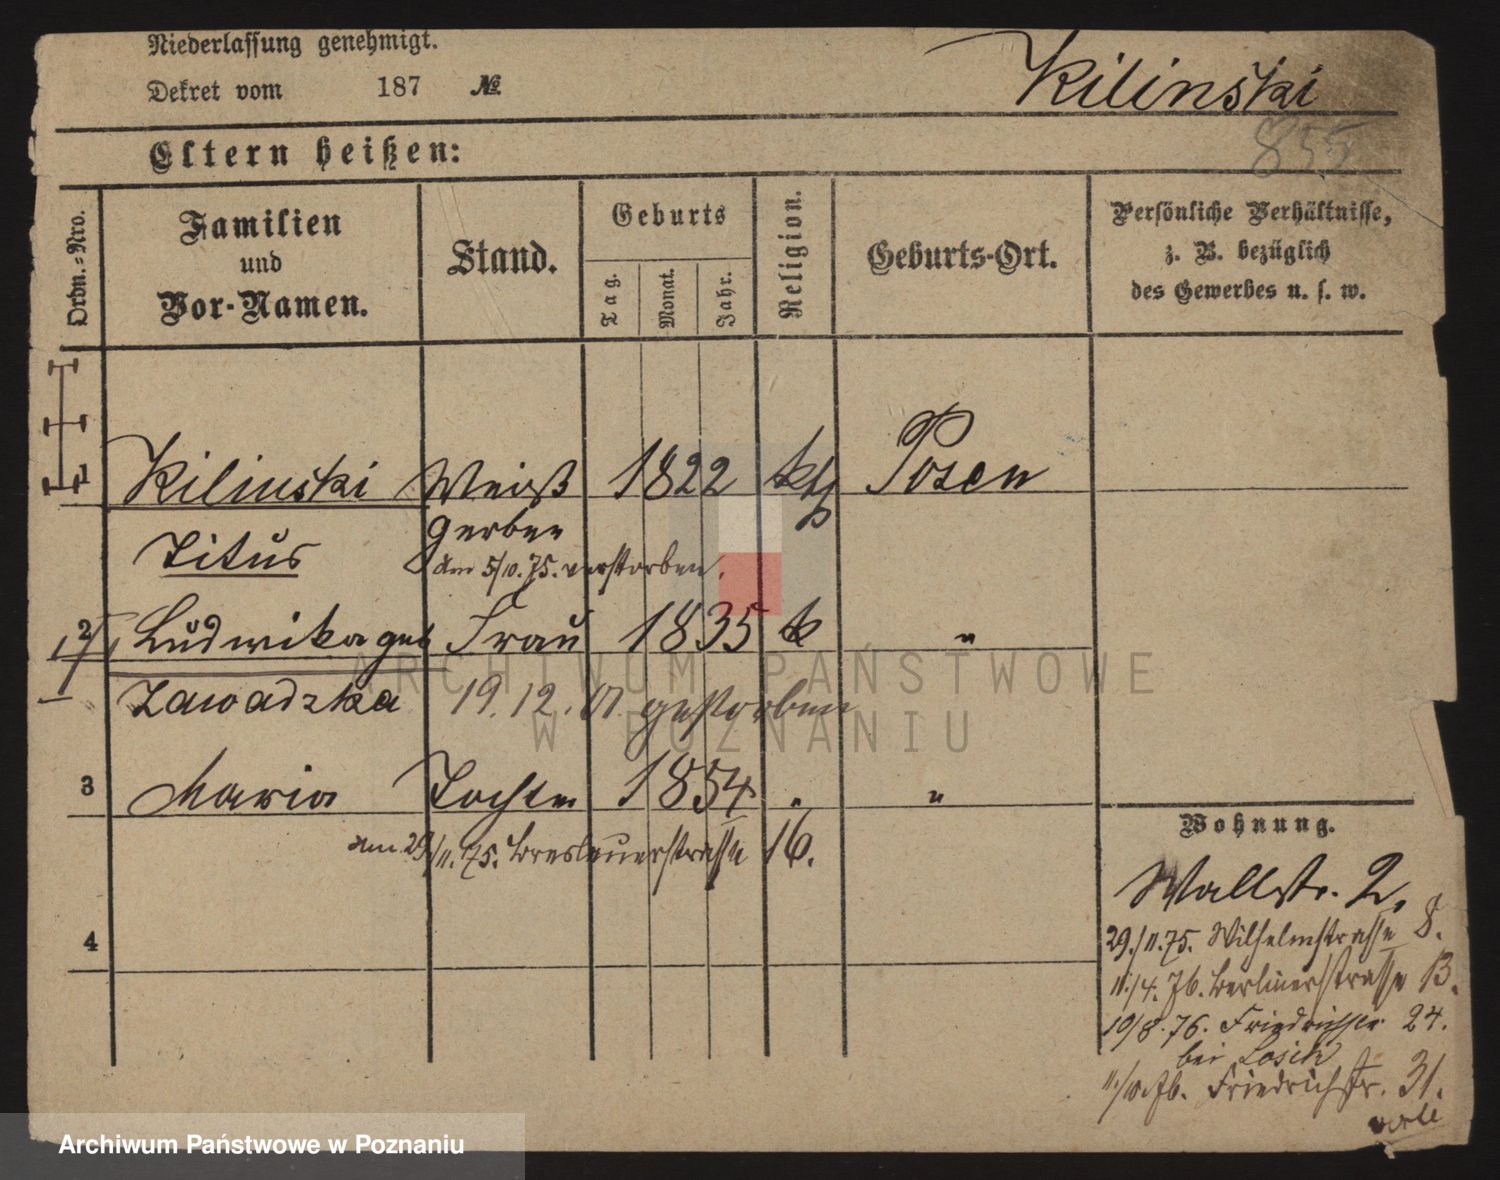 Niederlassung genehmigt.
Dekret vom 187 №
Kilinski
855
Eltern heißen:
Ordn.=Nro.
Familien
und
Vor-Namen.
Stand.
Geburts
Tag.
Monat.
Jahr.
Religion.
Geburts-Ort.
Persönliche Verhältnisse,
z. B. bezüglich
des Gewerbes u. s. w.
1 Kilinski Weiß 1822 kth Posen
Titus gerber
am 5/10. 75. verstorben.
2 Ludwika geb Frau 1835 k "
Zawadzka 19.12.07 gestorben
3 Maria Tochter 1854 "
am 29/11. 75. Breslauerstrasse 16.
4
Wohnung.
Wallstr. 2.
29./11. 75. Wilhelmstrasse 8.
11./4. 76. Berlinerstrasse 13.
19/8. 76. Friedrichstr. 24.
bei Losch
11./10. 76. Friedrichstr. 31.
ARCHIWUM PAŃSTWOWE
W POZNANIU
Archiwum Państwowe w Poznaniu